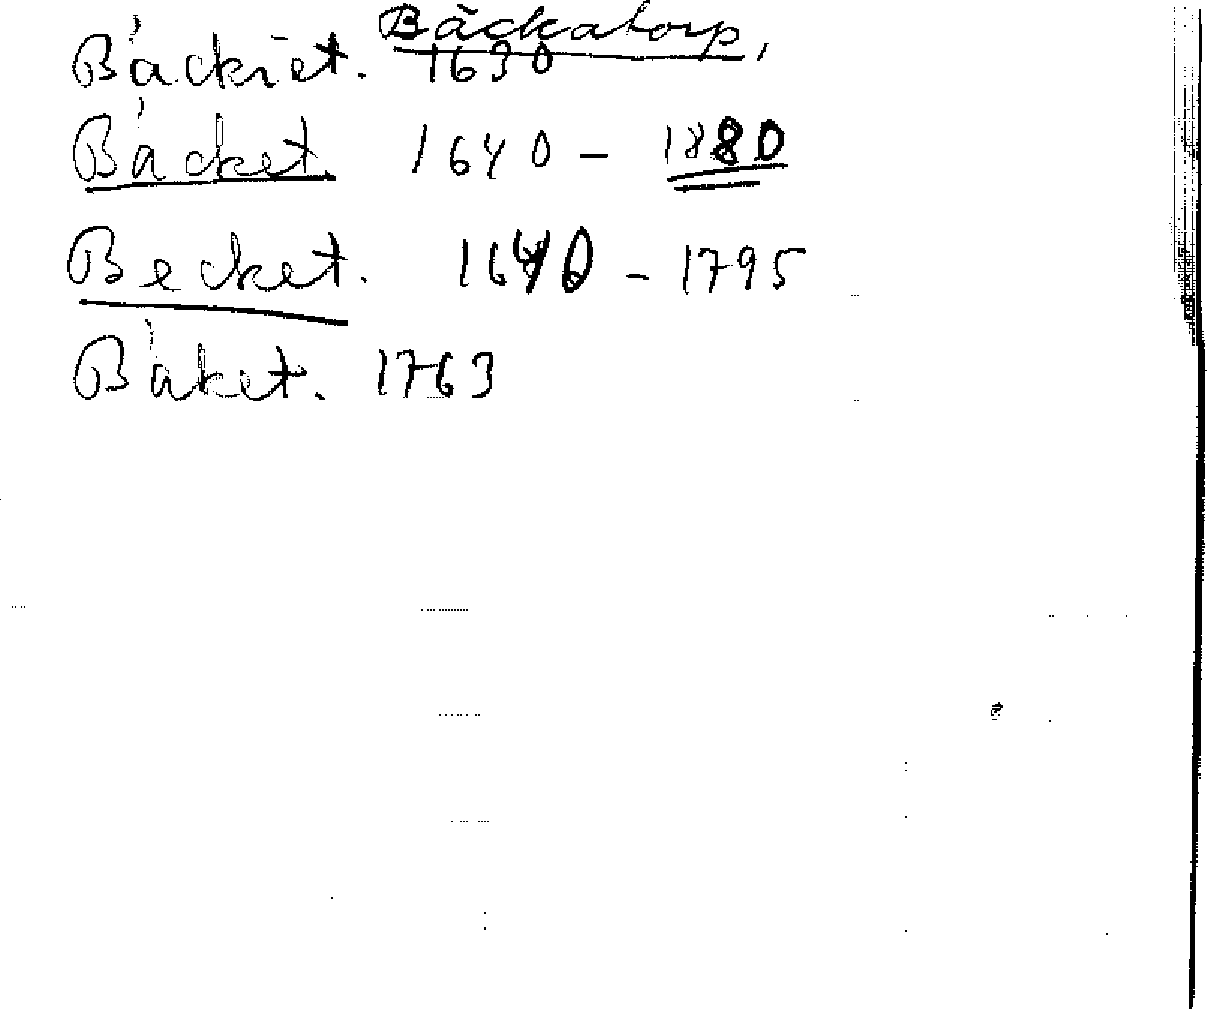 Bäckatorp,
Bäckiet. 1630
Bäcket. 1640 - 1880
Becket. 1640 - 1795
Bäket. 1763